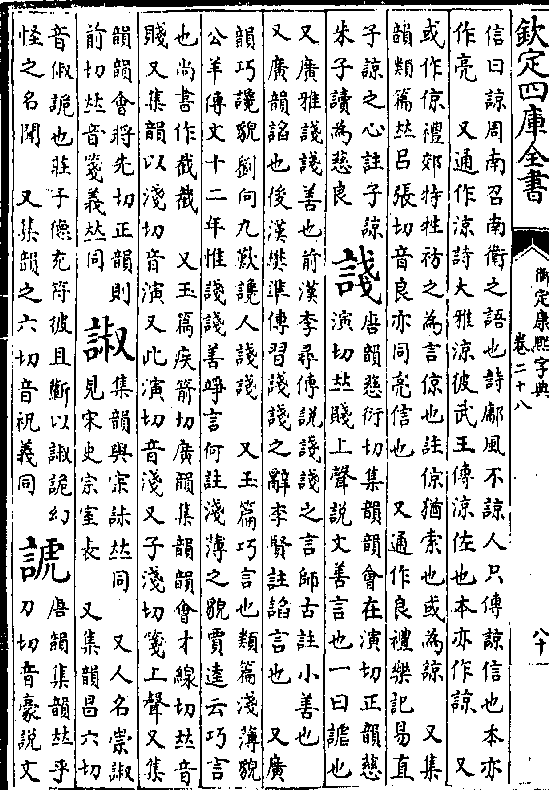 欽定四庫全書
御定康熙字典
卷二十八
八十
信曰諒周南召南衛之語也詩鄘風不諒人只傳諒信也本亦
作亮　又通作涼詩大雅涼彼武王傳涼佐也本亦作諒　又
或作倞禮郊特牲祊之為言倞也註倞猶索也或為諒　又集
韻類篇𠀤呂張切音良亦同亮信也　又通作良禮樂記易直
子諒之心註子諒
朱子讀為慈良
諓
唐韻慈衍切集韻韻會在演切正韻慈
演切𠀤賤上聲說文善言也一曰謔也
又廣雅諓諓善也前漢李尋傳說諓諓之言師古註小善也
又廣韻諂也後漢樊準傳習諓諓之辭李賢註諂言也　又廣
韻巧讒貌劉向九歎讒人諓諓　又玉篇巧言也類篇淺薄貌
公羊傳文十二年惟諓諓善竫言何註淺薄之貌賈逵云巧言
也尚書作截截　又玉篇疾箭切廣韻集韻韻會才線切𠀤音
賤又集韻以淺切音演又此演切音淺又子淺切箋上聲又集
韻韻會將先切正韻則
前切𠀤音箋義𠀤同
諔
集韻與宗誄𠀤同　又人名崇諔
見宋史宗室表　又集韻昌六切
音俶詭也莊子德充符彼且蘄以諔詭幻
怪之名聞　又集韻之六切音祝義同
諕
唐韻集韻𠀤乎
刀切音豪說文